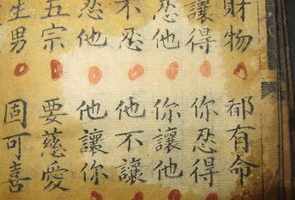 財物 都有命
讓得 你忍得
忍他 你讓他
不忍 他不讓
忍他 他讓你
五宗 要慈愛
生男 固可喜